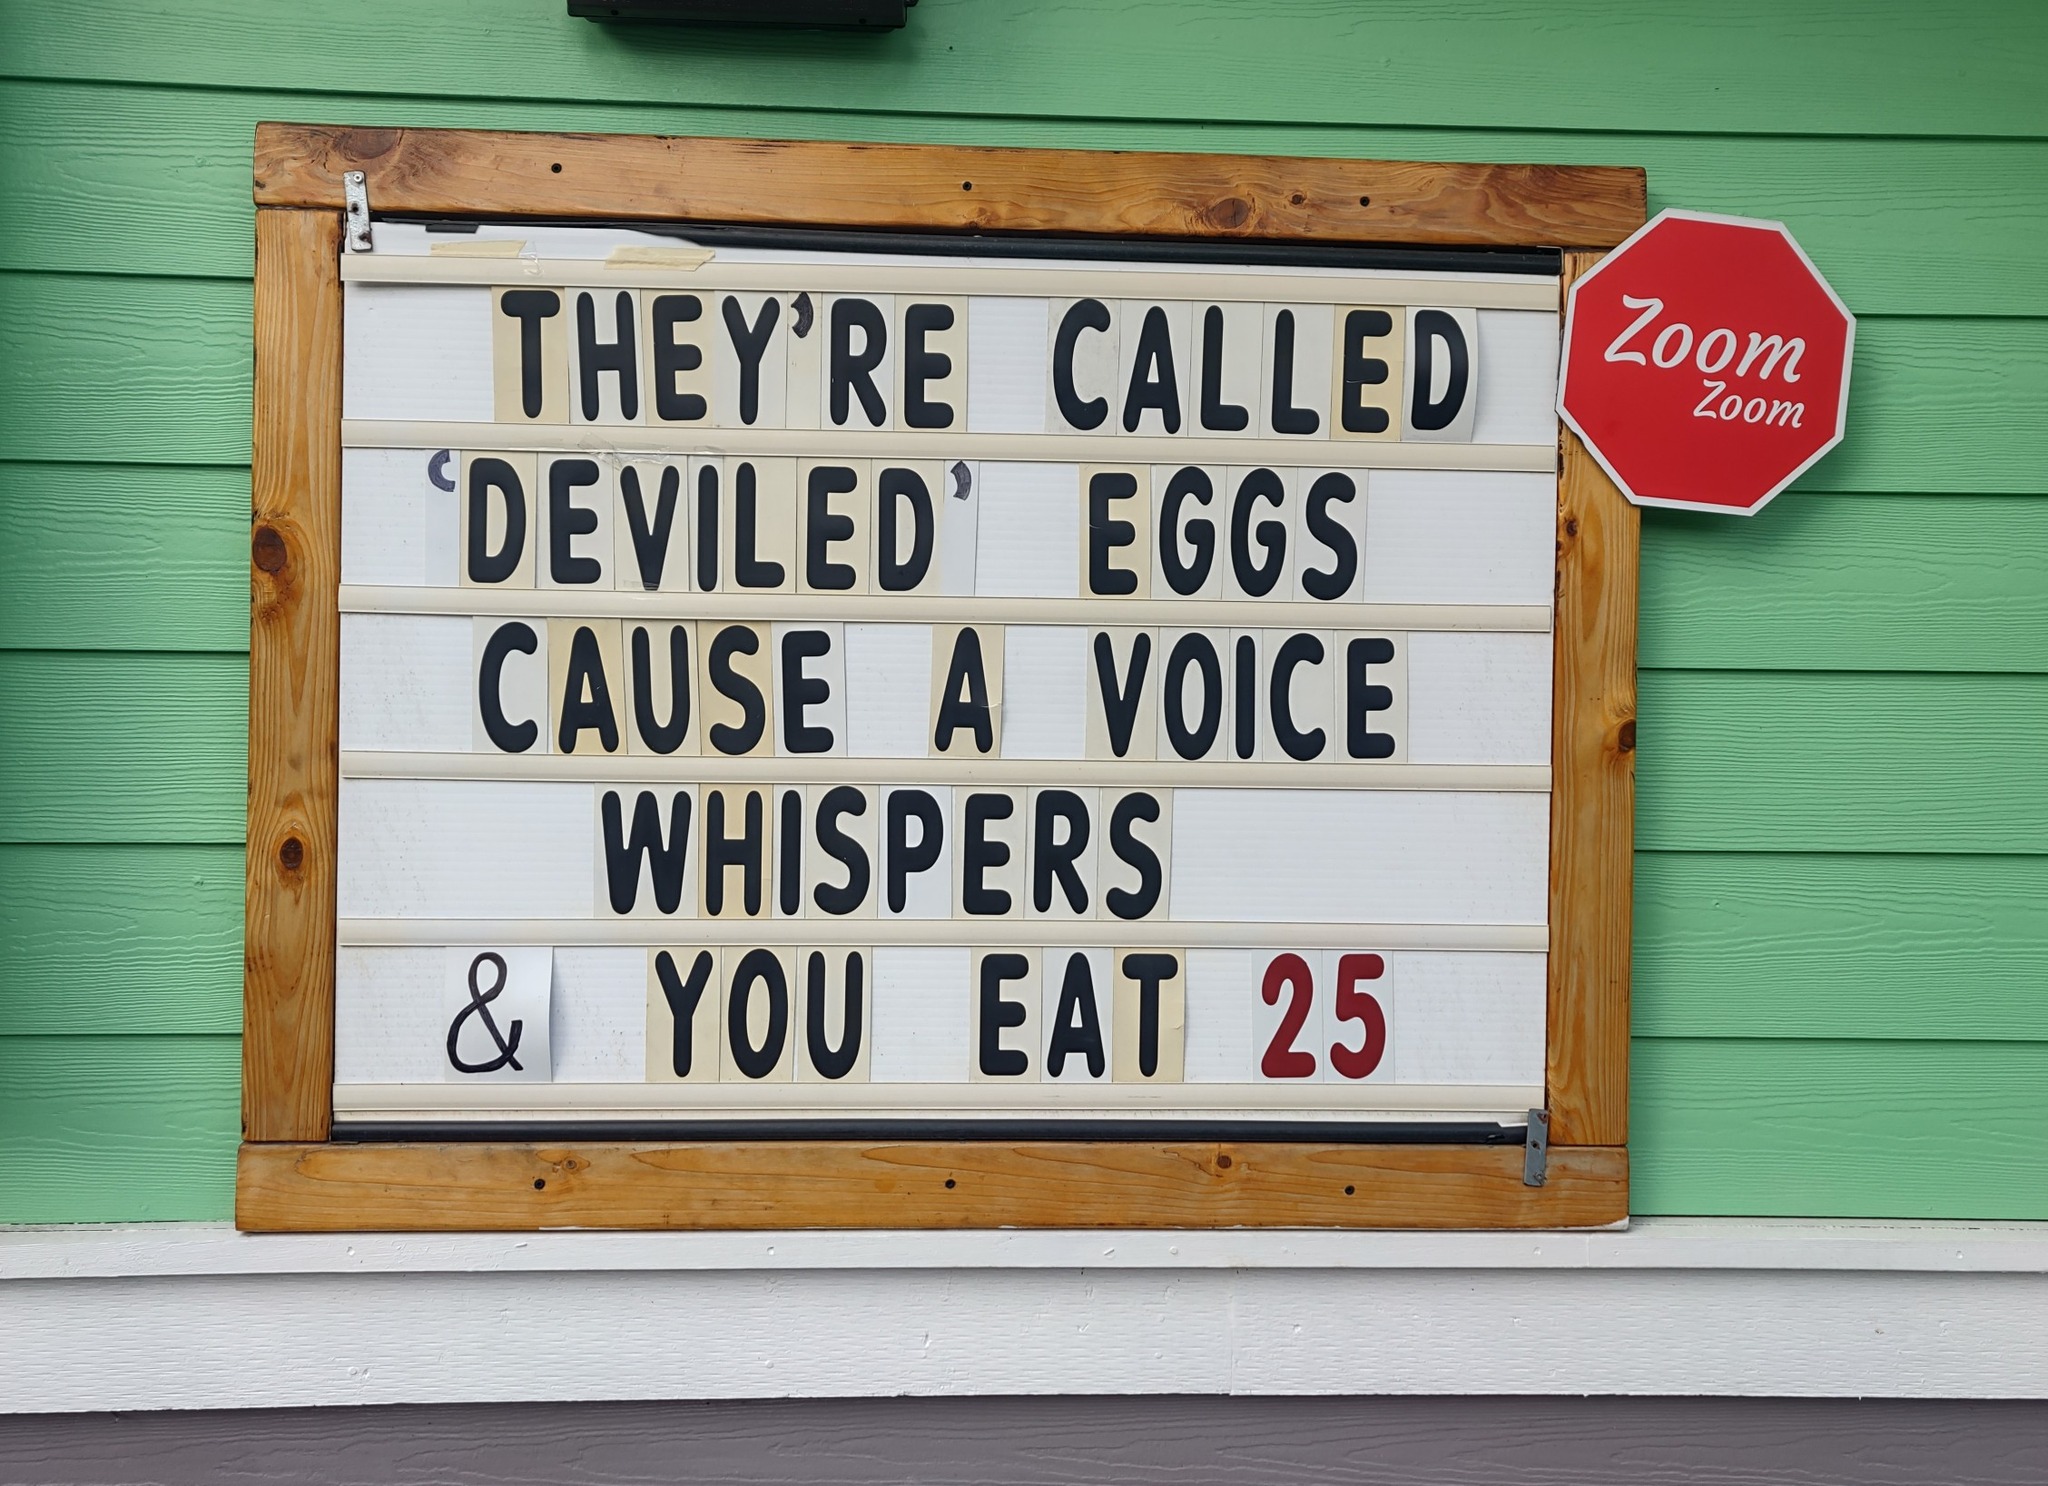 THEY'RE CALLED
'DEVILED' EGGS
CAUSE A VOICE
WHISPERS
& YOU EAT 25
Zoom
Zoom